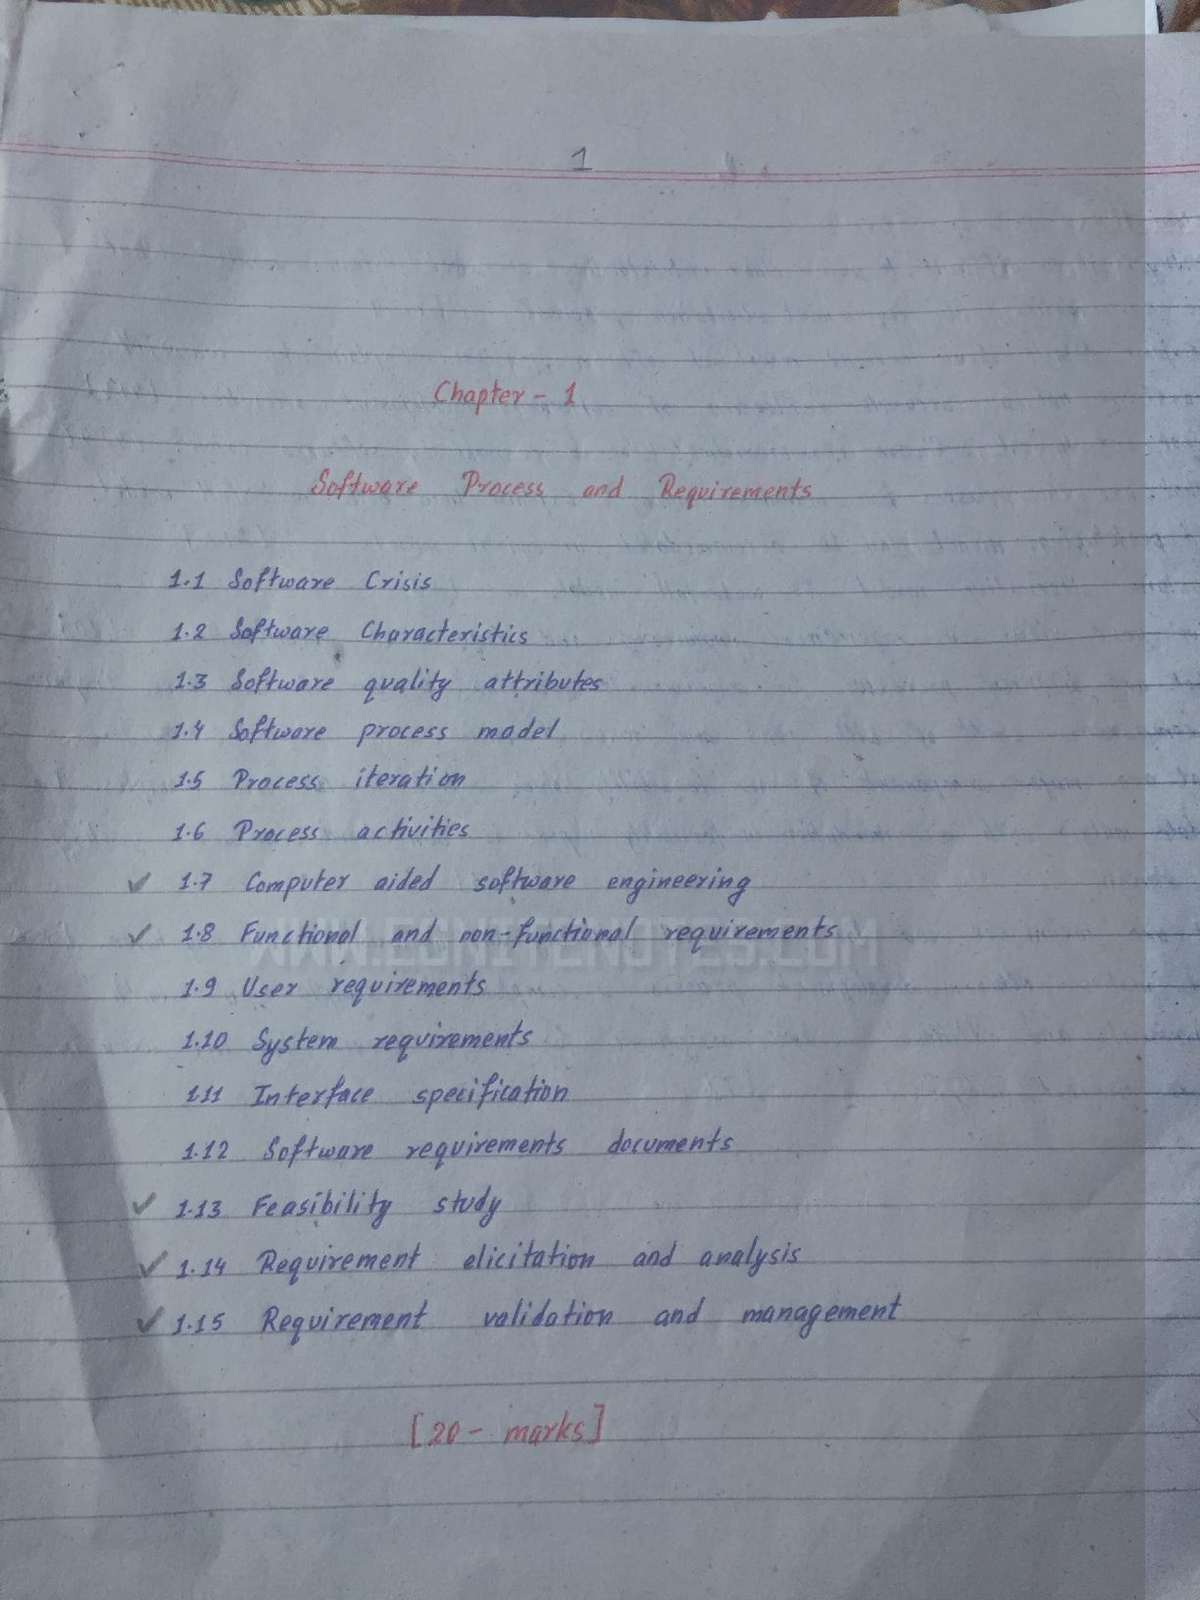 1
Chapter - 1
Software Process and Requirements
1.1 Software Crisis
1.2 Software Characteristics
1.3 Software quality attributes
1.4 Software process model
1.5 Process iteration
1.6 Process activities
✓ 1.7 Computer aided software engineering
✓ 1.8 Functional and non-functional requirements
1.9 User requirements
1.10 System requirements
1.11 Interface specification
1.12 Software requirements documents
✓ 1.13 Feasibility study
✓ 1.14 Requirement elicitation and analysis
✓ 1.15 Requirement validation and management
[20 - marks]